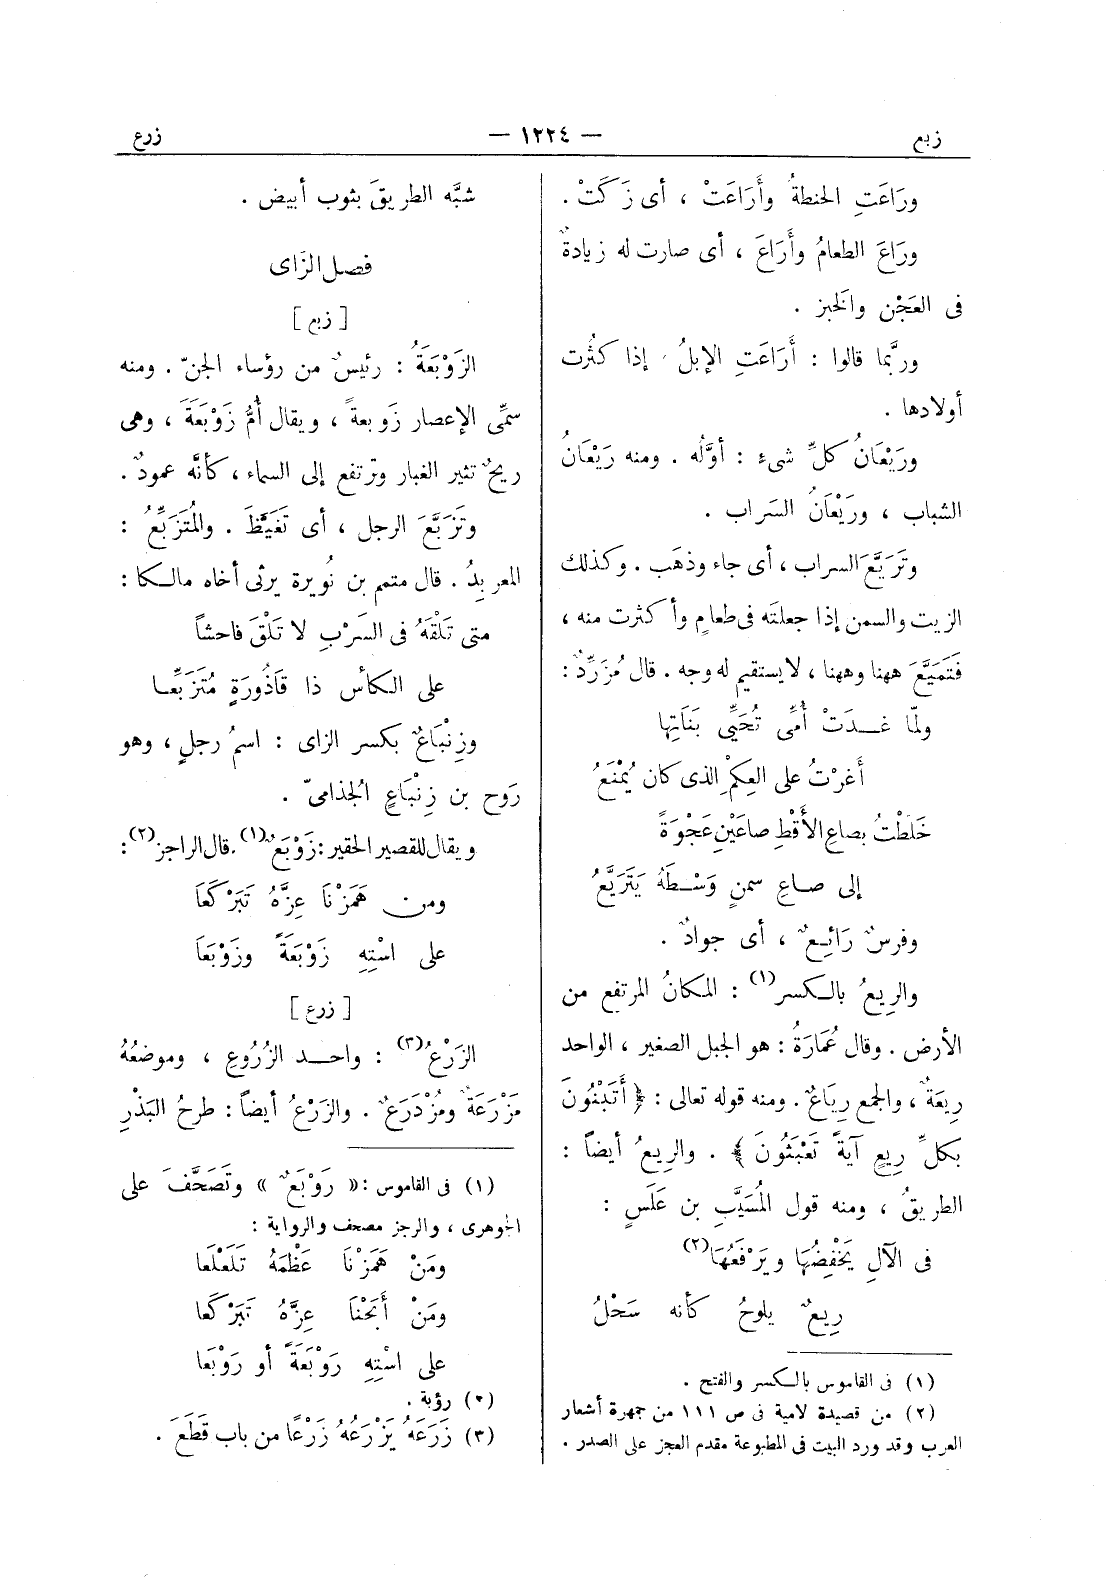 زبع
— ١٢٢٤ —
زرع
ورَاعَتِ الحنطةُ وأَرَاعَتْ ، أى زَكَتْ .
ورَاعَ الطعامُ وأَرَاعَ ، أى صارت له زيادةٌ
فى العَجْن والخَبز .
وربَّما قالوا : أَرَاعَتِ الإبلُ ، إذا كثُرت
أولادها .
ورَيْعَانُ كلِّ شىءٍ : أوَّلُه . ومنه رَيْعَانُ
الشباب ، ورَيْعَانُ السَراب .
وتَرَيَّعَ السراب ، أى جاء وذهَب . وكذلك
الزيت والسمن إذا جعلتَه فى طعامٍ وأكثرت منه ،
فَتَمَيَّعَ ههنا وههنا ، لا يستقيم له وجه . قال مُزَرِّدٌ :
ولمّا غَدَتْ أُمِّى تُحَيِّى بَنَاتِها
أَغرْتُ على العِكْمِ الذى كان يُمْنَعُ
خَلَطْتُ بصاعِ الأَقْطِ صاعَيْنِ عَجْوَةً
إلى صاعِ سمنٍ وَسْطَهُ يَتَرَيَّعُ
وفرسٌ رَائِعٌ ، أى جوادٌ .
والرِيعُ بالكسر(١) : المكانُ المرتفع من
الأرض . وقال عُمَارَةُ : هو الجبل الصغير ، الواحد
رِيعَةٌ ، والجمع رِيَاعٌ . ومنه قوله تعالى : ﴿ أَتَبْنُونَ
بكلِّ رِيعٍ آيَةً تَعْبَثُونَ ﴾ . والرِيعُ أيضاً :
الطريقُ ، ومنه قول المُسَيَّبِ بن عَلَسٍ :
فى الآلِ يَخْفِضُهَا ويَرْفَعُهَا(٢)
رِيعٌ يلوحُ كأنه سَحْلُ
(١) فى القاموس بالكسر والفتح .
(٢) من قصيدة لامية فى ص ١١١ من جمهرة أشعار
العرب وقد ورد البيت فى المطبوعة مقدم العجز على الصدر .
شبَّه الطريقَ بثوب أبيض .
فصل الزَاى
[ زبع ]
الزَوْبَعَةُ : رئيسٌ من رؤساء الجنّ . ومنه
سمِّى الإعصار زَوبعةً ، ويقال أُمُّ زَوْبَعَةَ ، وهى
ريحٌ تثير الغبار وترتفع إلى السماء ، كأنَّه عمودٌ .
وتَزَبَّعَ الرجل ، أى تَغَيَّظَ . والمُتَزَبِّعُ :
المعربِدُ . قال متمم بن نُويرة يرثى أخاه مالكا :
متى تَلْقَهُ فى السَرْبِ لا تَلْقَ فاحشاً
على الكأس ذا قَاذُورَةٍ مُتَزَبِّعَا
وزِنْبَاعٌ بكسر الزاى : اسمُ رجلٍ ، وهو
رَوح بن زِنْبَاعٍ الجُذامىّ .
ويقال للقصير الحقير : زَوْبَعٌ(١) . قال الراجز(٢) :
ومن هَمَزْنَا عِزَّهُ تَبَرْكَعَا
على اسْتِهِ زَوْبَعَةً وزَوْبَعَا
[ زرع ]
الزَرْعُ(٣) : واحد الزُرُوعِ ، وموضعُهُ
مَزْرَعَةٌ ومُزْدَرَعٌ . والزَرْعُ أيضاً : طرحُ البَذْرِ
(١) فى القاموس : « رَوْبَعٌ » وتَصَحَّفَ على
الجوهرى ، والرجز مصحف والرواية :
ومَنْ هَمَزْنَا عَظْمَهُ تَلَعْلَعَا
ومَنْ أَبَحْنَا عِزَّهُ تَبَرْكَعَا
على اسْتِهِ رَوْبَعَةً أو رَوْبَعَا
(٢) رؤبة .
(٣) زَرَعَهُ يَزْرَعُهُ زَرْعًا من باب قَطَعَ .